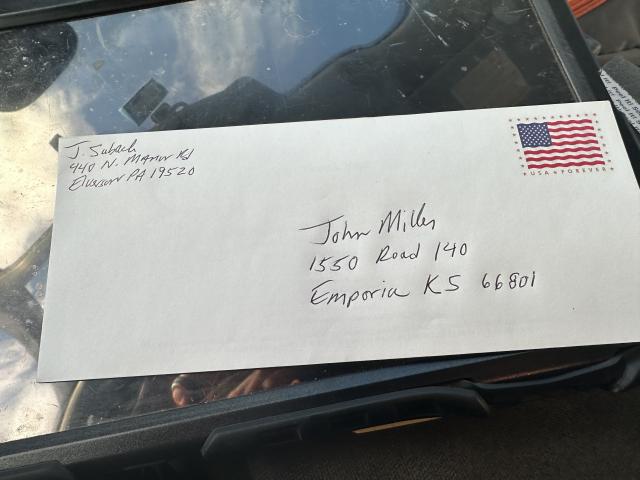 J. Subach
440 N. Manor Rd
Elverson PA 19520
USA FOREVER
John Miller
1550 Road 140
Emporia KS 66801